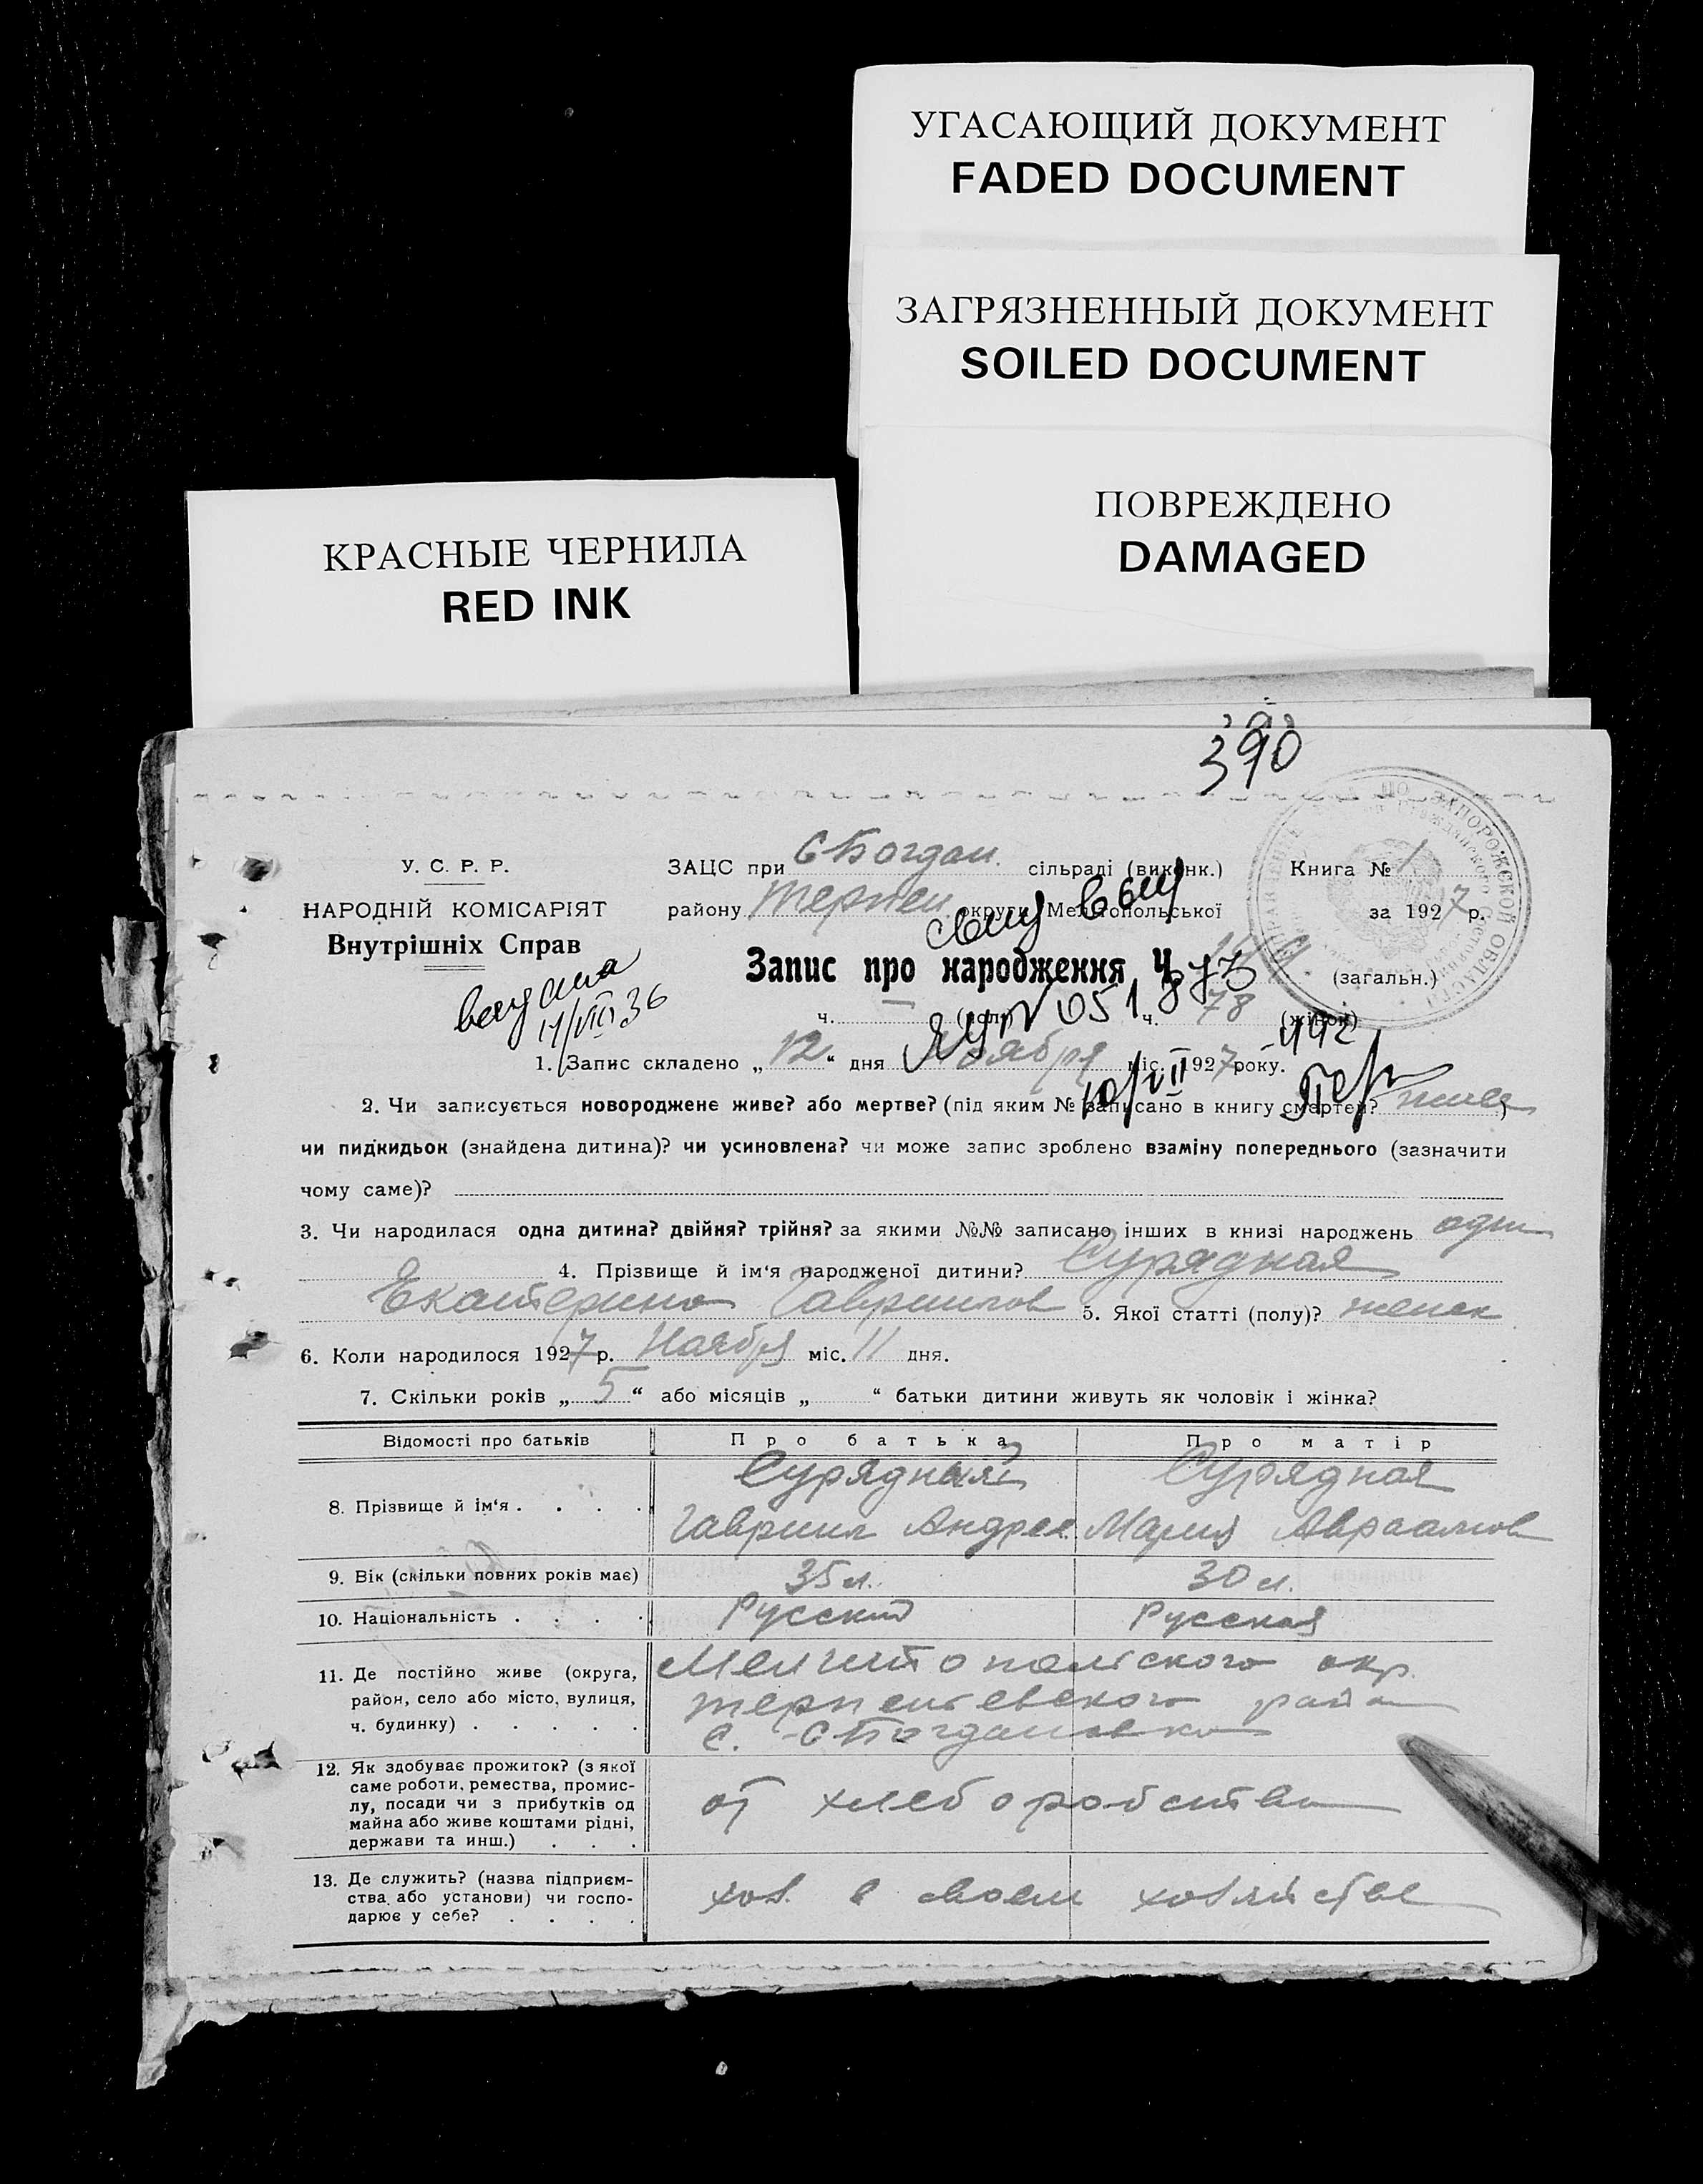 УГАСАЮЩИЙ ДОКУМЕНТ
FADED DOCUMENT
ЗАГРЯЗНЕННЫЙ ДОКУМЕНТ
SOILED DOCUMENT
ПОВРЕЖДЕНО
DAMAGED
КРАСНЫЕ ЧЕРНИЛА
RED INK
390
У. С. Р. Р.
НАРОДНІЙ КОМІСАРІЯТ
Внутрішніх Справ
14/VIII 36
ЗАЦС при С-Богдан. сільраді (виконк.)
району Терпен. округи Мелітопольської
Книга № 1
за 1927 р.
ЗАПОРОЖСКОЙ ОБЛАСТИ
Запис про народження Ч. (загальн.)
ч. — (чол.) ч. 78 (жінок)
1. Запис складено „12“ дня Ноября міс. 1927 року.
2. Чи записується новороджене живе? або мертве? (під яким № записано в книгу смертей? живе)
чи пидкидьок (знайдена дитина)? чи усиновлена? чи може запис зроблено взаміну попереднього (зазначити
чому саме)?
3. Чи народилася одна дитина? двійня? трійня? за якими №№ записано інших в книзі народжень одна
4. Прізвище й ім'я народженої дитини? Сурядная
Екатерина Гавриилов 5. Якої статті (полу)? женск
6. Коли народилося 1927 р. Ноября міс. 11 дня.
7. Скільки років „5“ або місяців „ “ батьки дитини живуть як чоловік і жінка?
Відомості про батьків Про батька Про матір
8. Прізвище й ім'я . . . .
Сурядный Сурядная
Гавриил Андрее. Мария Авраамов
9. Вік (скільки повних років має) 35 л. 30 л.
10. Національність . . . . Русский Русская
11. Де постійно живе (округа,
район, село або місто, вулиця,
ч. будинку) . . . . .
Мелитопольского окр.
Терпеньевского района
с. С-Богдановка
12. Як здобуває прожиток? (з якої
саме роботи, ремества, промис-
лу, посади чи з прибутків од
майна або живе коштами рідні,
держави та инш.) . . .
от хлеборобства
13. Де служить? (назва підприєм-
ства або установи) чи госпо-
дарює у себе? . . . .
хоз. в своем хозяйстве